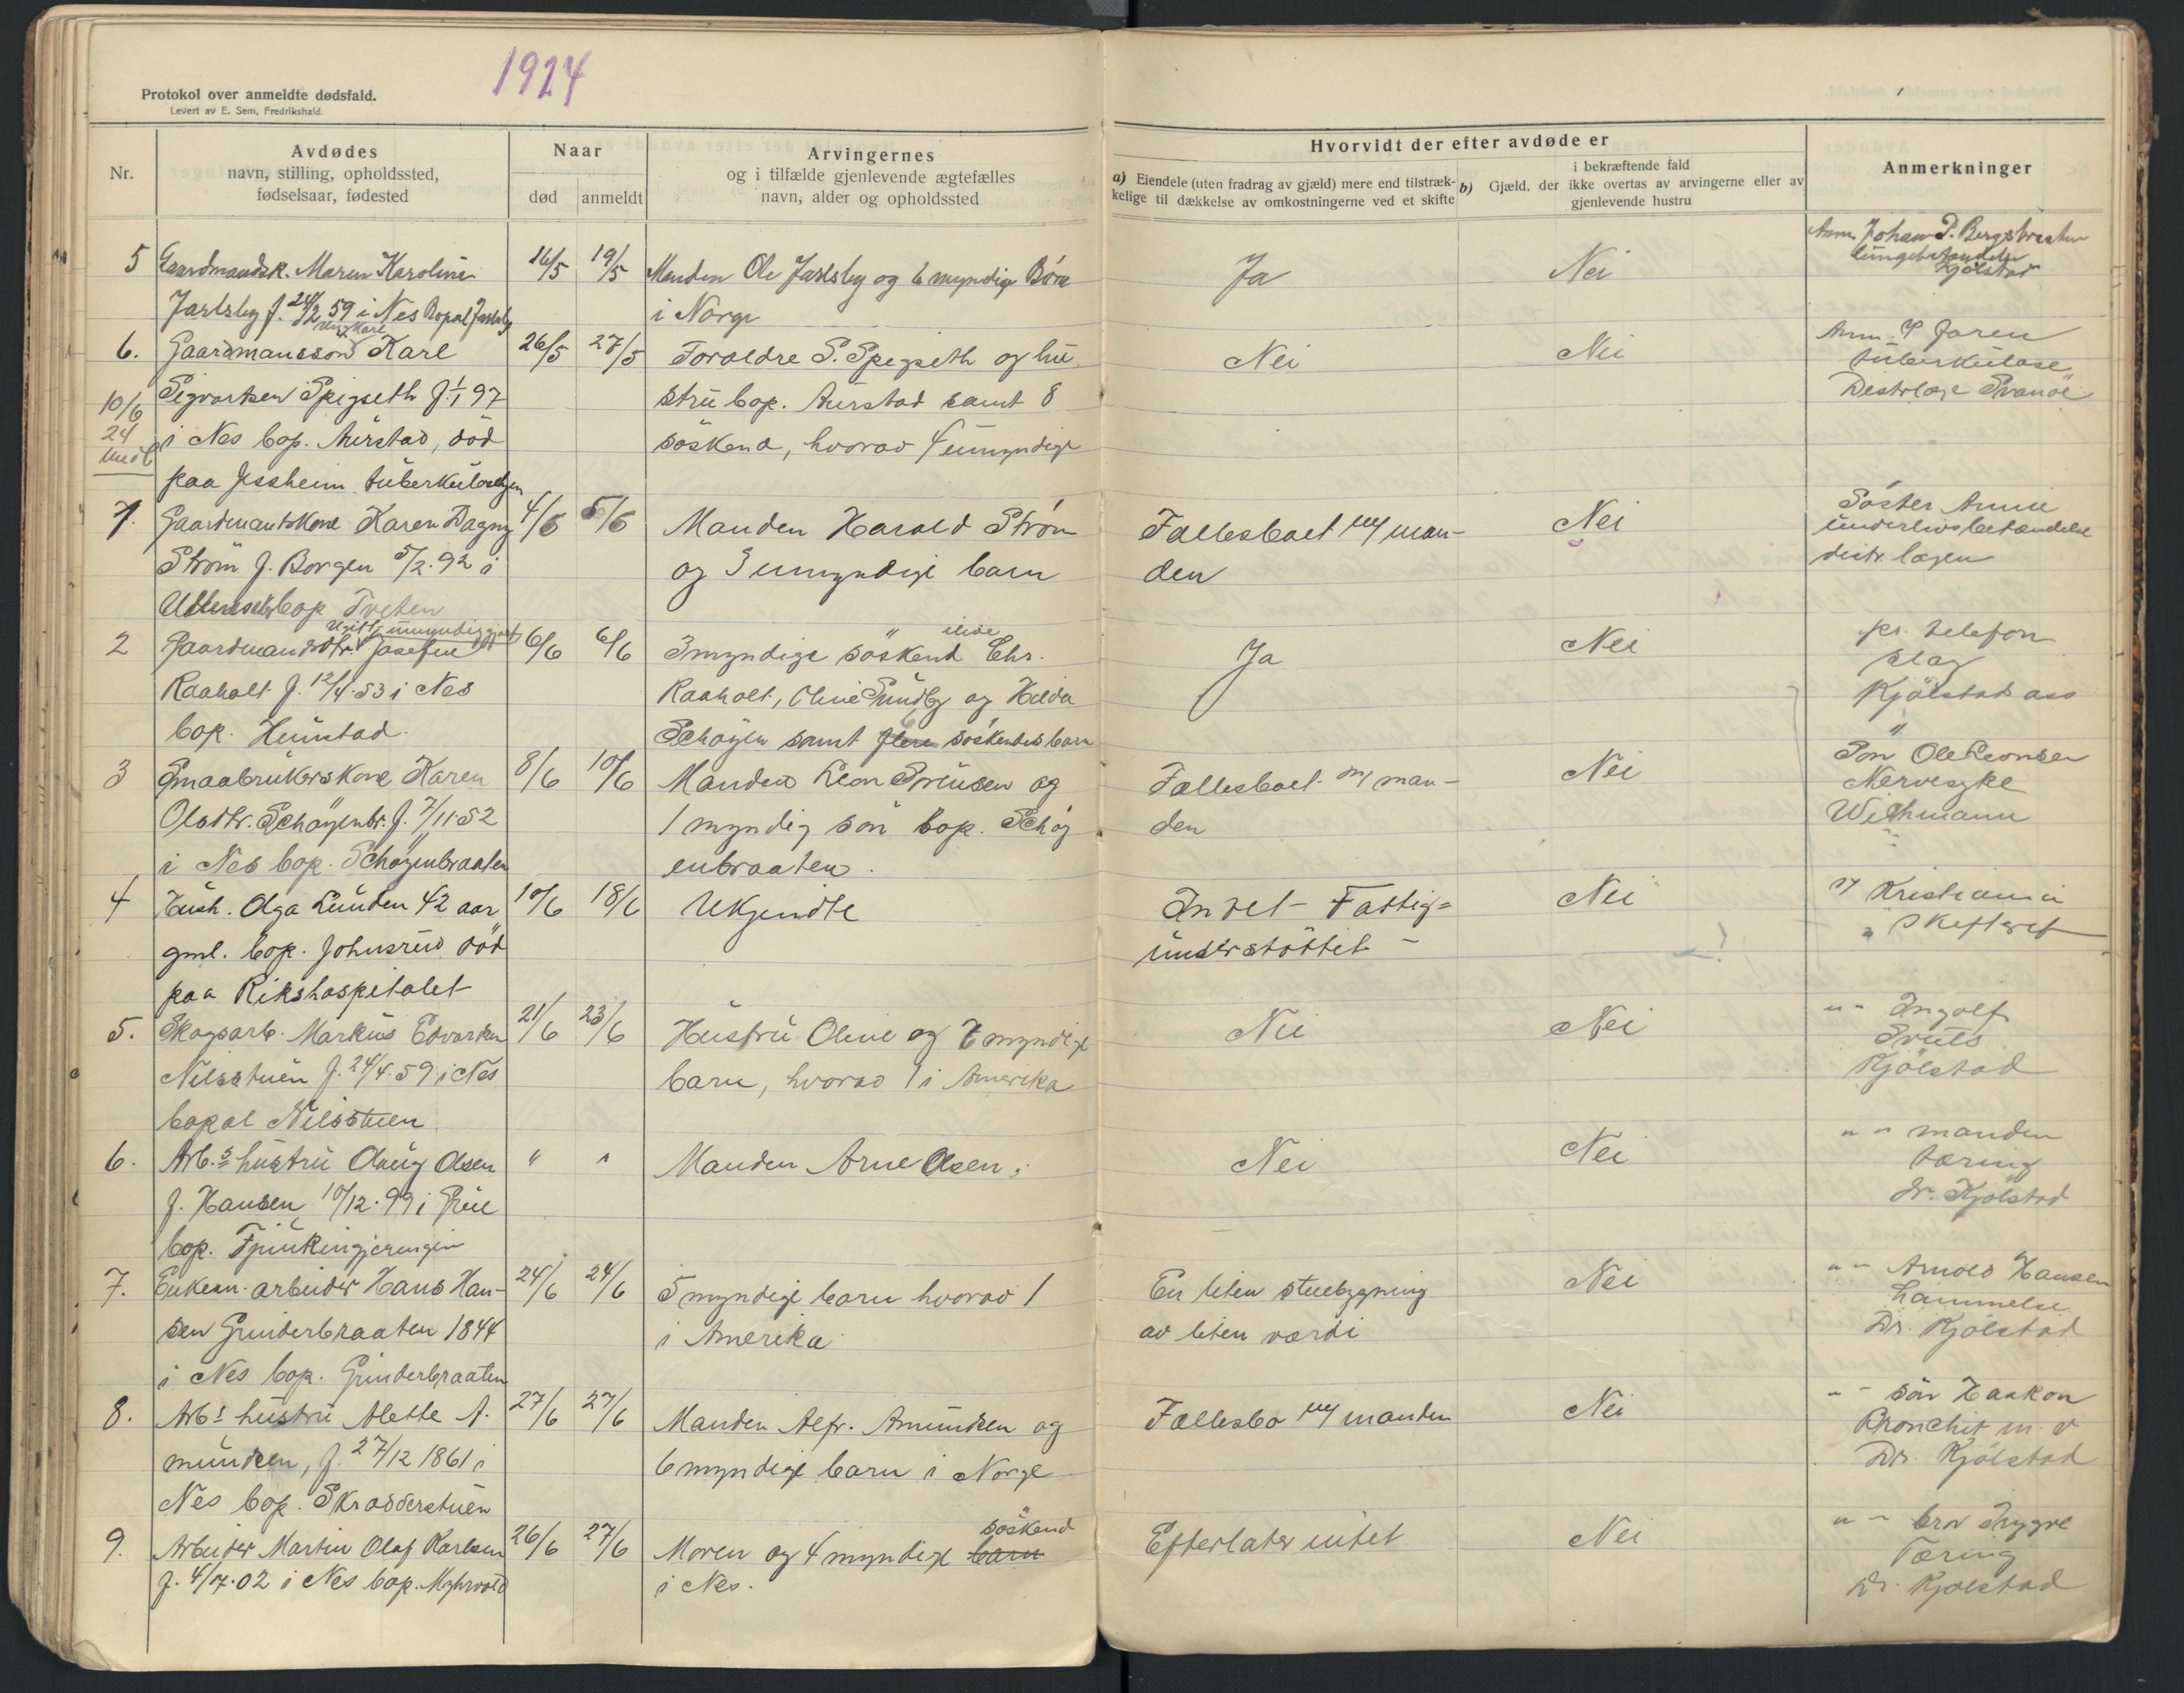 1924
Protokol over anmeldte dødsfald.
Levert av E. Sem, Fredrikshald.
Nr.
Avdødes
navn, stilling, opholdssted,
fødselsaar, fødested
Naar
død
anmeldt
Arvingernes
og i tilfælde gjenlevende ægtefælles
navn, alder og opholdssted
Hvorvidt der efter avdøde er
a) Eiendele (uten fradrag av gjæld) mere end tilstræk-
kelige til dækkelse av omkostningerne ved et skifte
i bekræftende fald
b) Gjæld, der ikke overtas av arvingerne eller av
gjenlevende hustru
Anmerkninger
5 Gaardmandsk. Maren Karoline
Jarlsby f. 24/2 59 i Nes Bopæl Jarlsby
16/5 19/5
Manden Ole Jarlsby og 6 myndige Børn
i Norge
Ja
Nei
Anm. Johan P. Bergsbraaten
lungebetændelse
Kjølstad
6. Gaardmanssøn Karl
Sigvartsen Spigseth f. 1/1 97
i Nes bop. Aurstad, död
paa Jessheim tüberkülosehjem
10/6
24
26/5 27/5
Foraldre S. Spegseth og hü
strü bop. Aurstad samt 8
söskend, hvorav 4 umyndige
Nei
Nei
Anm. Faren
tüberkülose
Distrlæge Svanöe
7. Gaardmandskone Karen Dagny
Ström f. Borgen 5/2.92 i
Ullensaker bop Tveten
4/6 5/6
Manden Harald Strøm
og 3 umyndige barn
Fællesboet m/ man-
den
Nei
Söster Annie
ünderlivsbetændelse
distr. lægen
2 Gaardmandsdtr. Josefine
Ugift, umyndiggjort
Raaholt f. 12/4.53 i Nes
bop. Heunstad.
6/6 6/6
3 myndige söskend Chr.
Raaholt, Oline Sundby og Hilda
Schøyen samt flere söskendebarn
Ja
Nei
pr. telefon
slag
Kjølstad ass
3 Smaabrükerskone Karen
Olsdtr. Schøyenbr. f. 7/11.52
i Nes bop. Schøyenbraaten
8/6 10/6
Manden Leon Svensen og
1 myndig sön bop. Schøy
enbraaten.
Fællesboet m/ man-
den
Nei
Sön Ole Leonsen
Nervesyke
Withmann
4 Hush. Olga Lunden 42 aar
gml. bop. Johnsrud död
paa Rikshospitalet
10/6 18/6
Ukjendte
Intet - Fattig-
ünderstöttet -
Nei
v/ Kristiania
Skifteret
5. Skogsarb. Markus Edvardsen
Nilsstuen f. 24/4.59 i Nes
bopæl Nilsstuen
21/6 23/6
Hüstrü Oline og 7 myndige
barn, hvorav 1 i Amerika
Nei
Nei
" - Ingolf
Kjølstad
6. Arb.s hüstrü Olaug Olsen
f. Hansen 10/12.99 i Grue
bop. Fjukingjerengen
" "
Manden Arne Olsen.
Nei
Nei
" - manden
tæring
dr. Kjølstad
7. Enkem. arbeider Hans Han-
sen Grinderbraaten 1844
i Nes bop. Grinderbraaten
24/6 24/6
5 myndige barn hvorav 1
i Amerika.
En liten stuebygning
av liten værdi
Nei
" - Arnold Hansen
Lammelse
Dr. Kjølstad
8. Arb.s hüstrü Alette A-
mündsen, f. 27/12 1861 i
Nes bop. Skradderstuen
27/6 27/6
Manden Alfr. Amundsen og
6 myndige barn i Norge
Fællesbo m/ manden
Nei
" - sön Haakon
Bronchit m. v
Dr. Kjølstad
9. Arbeider Martin Olaf Karlsen
f. 4/7.02 i Nes bop. Myhrvold
26/6 27/6
söskend
Moren og 4 myndige barn
i Nes.
Efterlater intet
Nei
" - bror Trygve
Tæring
Dr. Kjølstad